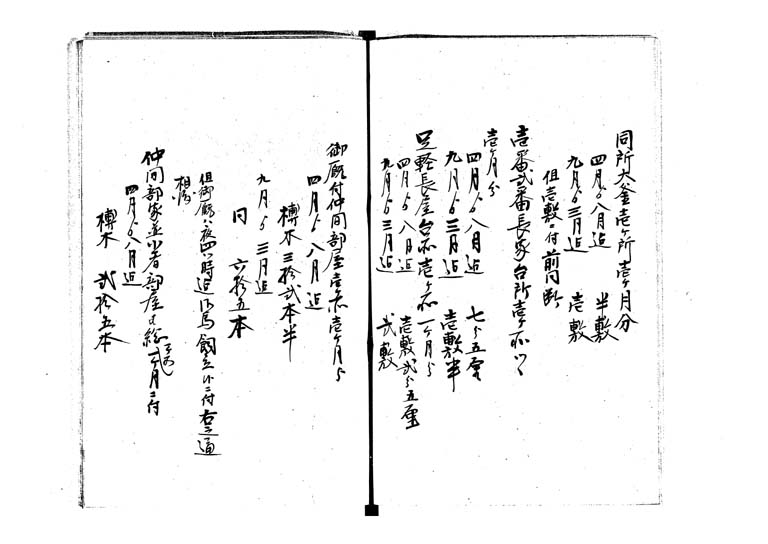 同所大釜壱ヶ所壱ヶ月分
四月ゟ八月迄 半敷
九月ゟ三月迄 壱敷
但壱敷ニ付前同断
壱番弐番長家台所壱ヶ所ツヽ
壱ヶ月分
四月ゟ八月迄 七分五厘
九月ゟ三月迄 壱敷半
足軽長屋台所壱ヶ所一ヶ月分
四月ゟ八月迄 壱敷弐分五厘
九月ゟ三月迄 弐敷
御厩付仲間部屋壱ヶ所壱ヶ月分
四月ゟ八月迄
榑木三拾弐本半
九月ゟ三月迄
同 六拾五本
但御厩ハ夜四ツ時迄御馬飼立候ニ付右之通
相渡
仲間部家並小者部屋壱ヶ月ニ付
四月ゟ八月迄
榑木 弐拾五本